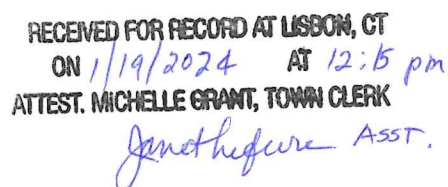 RECEIVED FOR RECORD AT LISBON, CT
ON 1/19/2024 AT 12:15 pm
ATTEST. MICHELLE GRANT, TOWN CLERK
ASST.